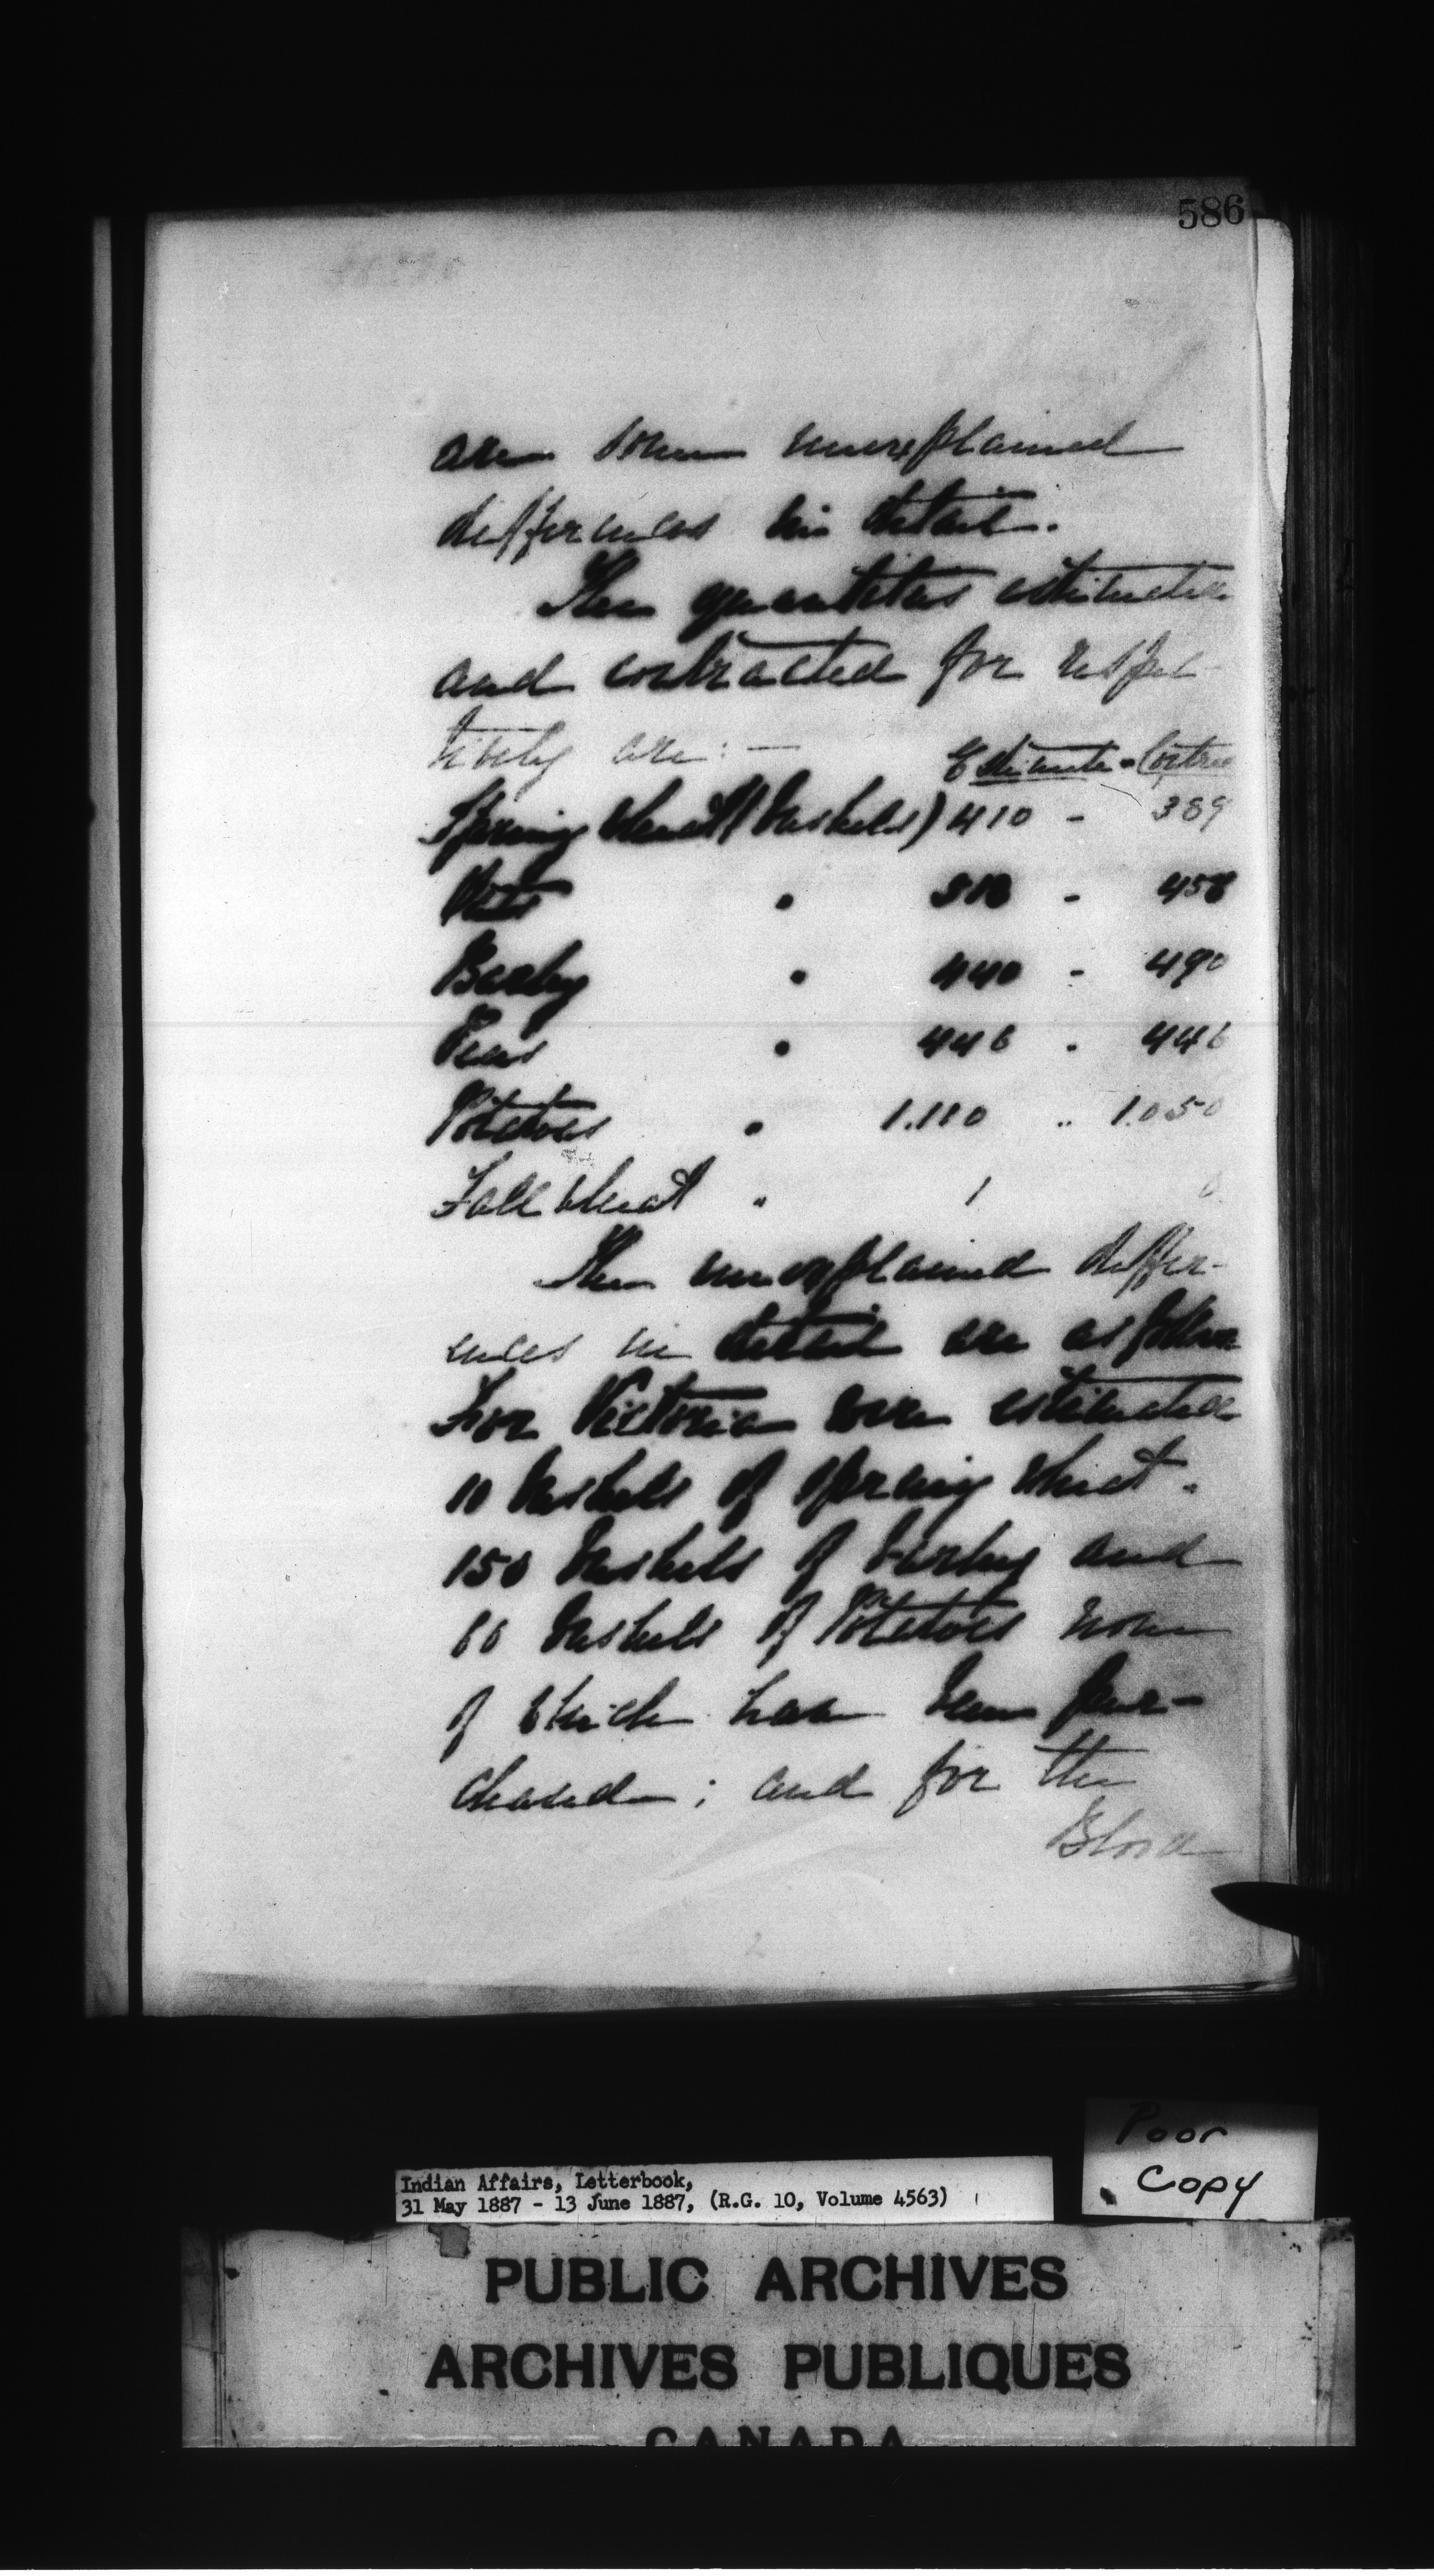 586
are some unexplained
differences in detail.
The quantities estimated
and contracted for respec-
tively are: —
Estimate - Contrac
Spring Wheat (bushels) 410 - 389
Oats " 518 - 458
Barley " 440 - 490
Peas " 446 - 446
Potatoes " 1.110 " 1.050
Fall Wheat " 1 0
The unexplained differ-
ences in detail are as follows
For Victoria were estimated
10 bushels of spring wheat.
150 bushels of barley and
60 bushels of Potatoes none
of which have been pur-
chased; and for the
Blood
Poor
Copy
Indian Affairs, Letterbook,
31 May 1887 - 13 June 1887, (R.G. 10, Volume 4563)
PUBLIC ARCHIVES
ARCHIVES PUBLIQUES
CANADA